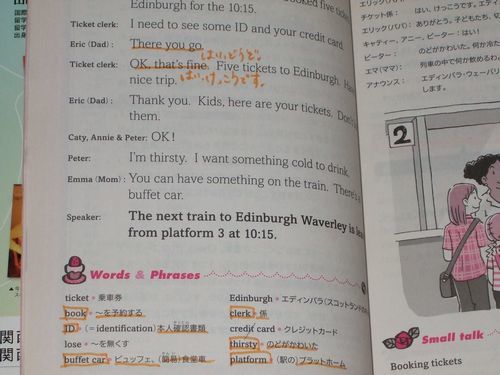 booked five ticke
Edinburgh for the 10:15.
Ticket clerk: I need to see some ID and your credit card
Eric (Dad): There you go.
はい、どうぞ。
Ticket clerk: OK, that's fine. Five tickets to Edinburgh. Ha
nice trip. はい、けっこうです。
Eric (Dad): Thank you. Kids, here are your tickets. Don't
them.
Caty, Annie & Peter: OK!
Peter: I'm thirsty. I want something cold to drink.
Emma (Mom): You can have something on the train. There's
buffet car.
Speaker: The next train to Edinburgh Waverley is lea
from platform 3 at 10:15.
Words & Phrases
ticket 乗車券
book ~を予約する
ID (= identification) 本人確認書類
lose ~を無くす
buffet car ビュッフェ、(簡易)食堂車
Edinburgh エディンバラ(スコットランド
clerk 係
credit card クレジットカード
thirsty のどがかわいた
platform (駅の)プラットホーム
チケット係: はい、けっこうです。エディ
エリック(パパ): ありがとう。子どもたち、
キャティー、アニー、ピーター: はい!
ピーター: のどがかわいた。何か冷た
エマ(ママ): 列車の中で何か飲めるわ。
アナウンス: エディンバラ・ウェーバリ
します。
2
Small talk
Booking tickets
関西
関西